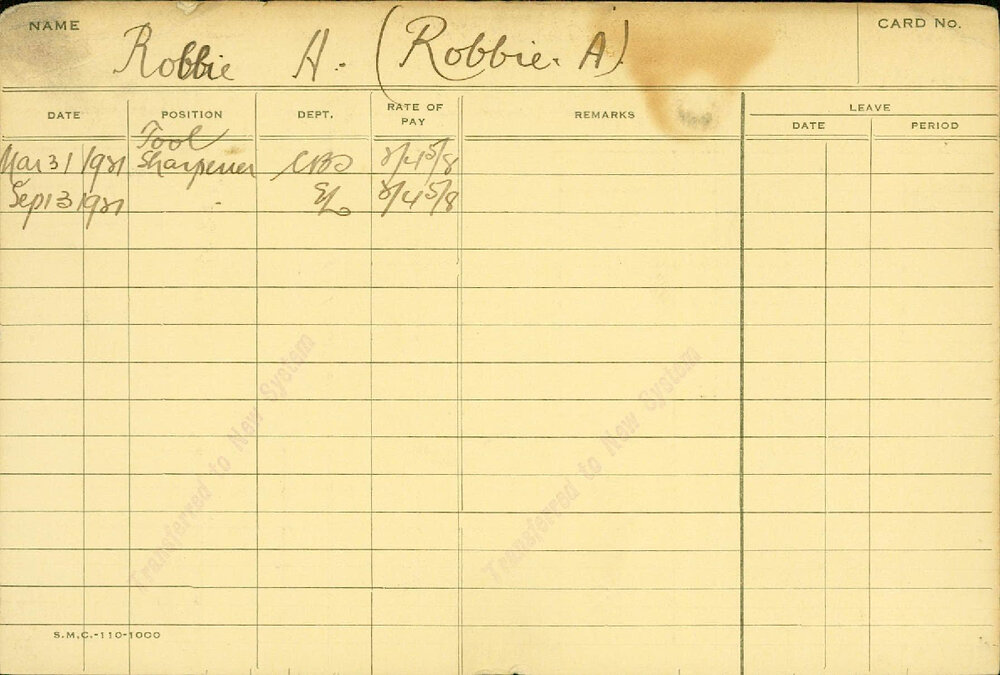 NAME Robbie H. (Robbie. A) CARD No.
DATE POSITION DEPT. RATE OF PAY REMARKS LEAVE
DATE PERIOD
Mar 31 1921 Tool Sharpener 2/4 5/8
Sep 13 1921 2/4 5/8
Transferred to New System
Transferred to New System
S.M.C.-110-1000